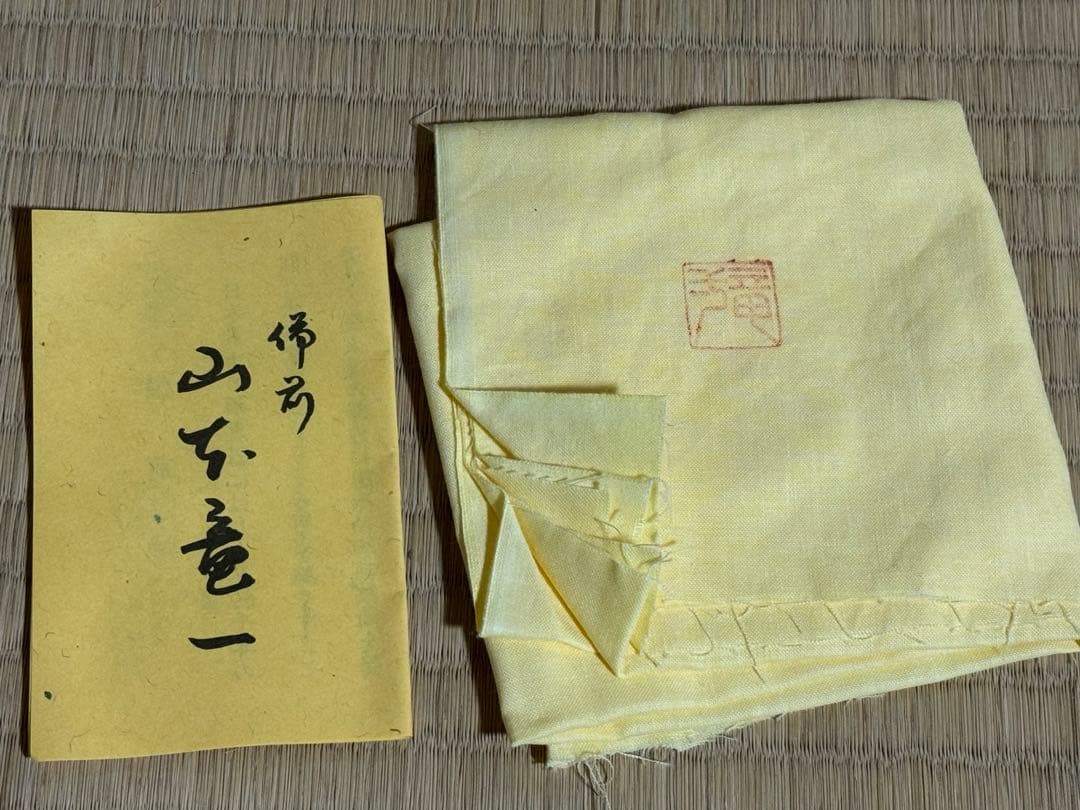 備前
山本竜一